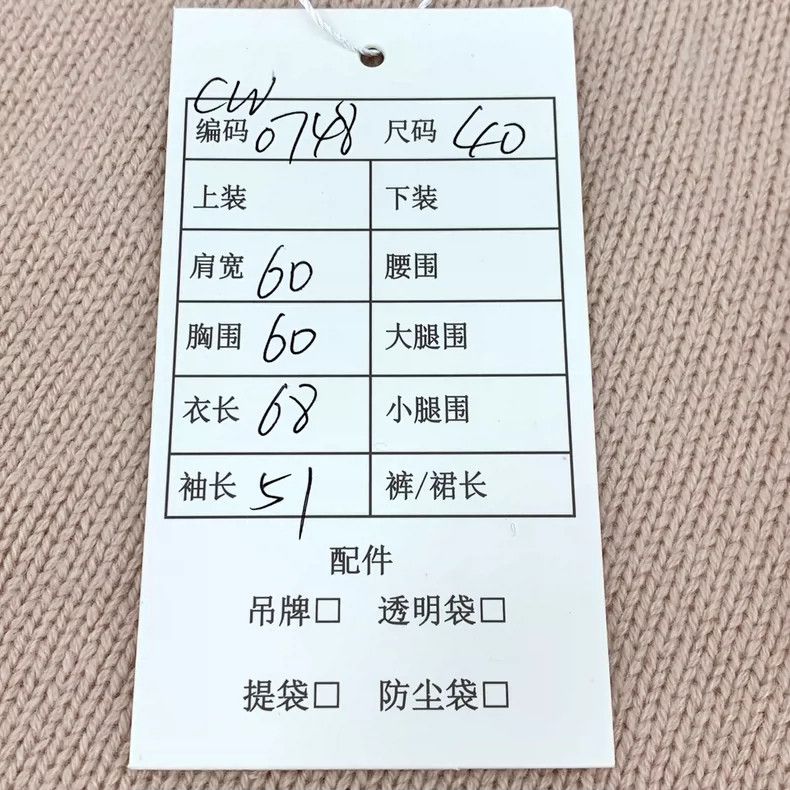 CW
编码 0748 尺码 40
上装 下装
肩宽 60 腰围
胸围 60 大腿围
衣长 68 小腿围
袖长 51 裤/裙长
配件
吊牌□ 透明袋□
提袋□ 防尘袋□